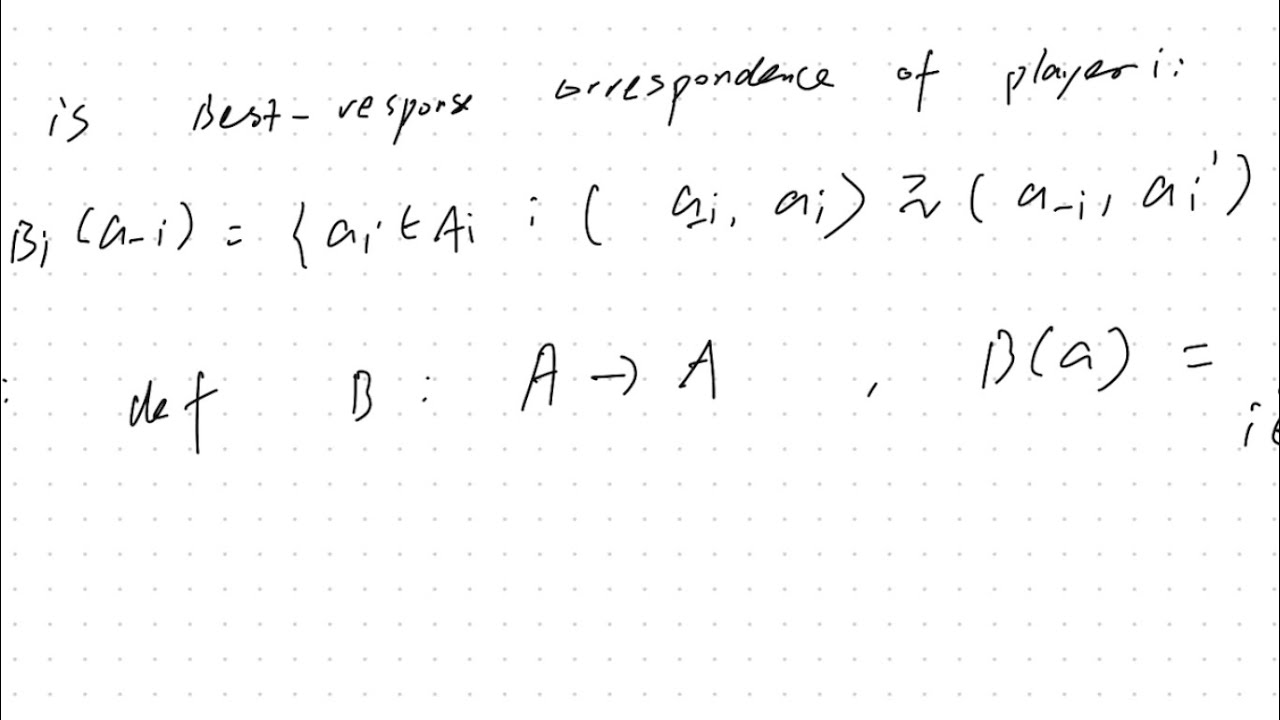 is Best-response correspondence of player i:
Bi (a-i) = { ai ∈ Ai : ( a-i, ai) ≿ ( a-i, ai')
: def B : A → A , B(a) =
i∈